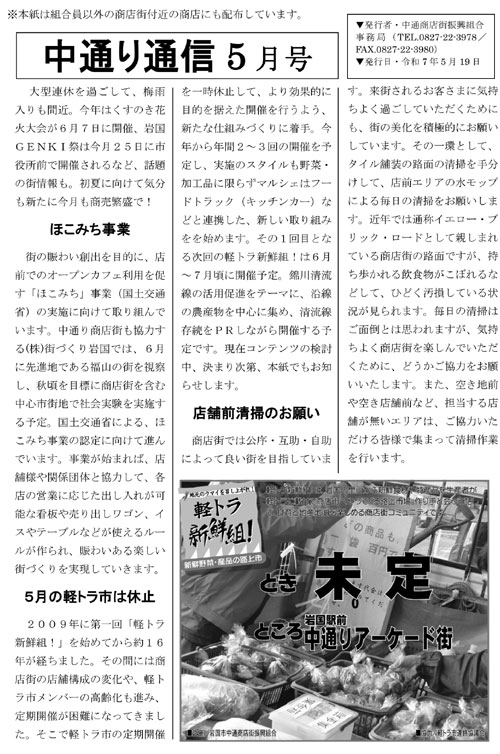 ※本紙は組合員以外の商店街付近の商店にも配布しています。
中通り通信５月号
▼発行者・中通商店街振興組合
事務局（TEL.0827-22-3978／
FAX.0827-22-3980）
▼発行日・令和７年５月１９日
大型連休を過ごして、梅雨
入りも間近。今年はくすのき花
火大会が６月７日に開催、岩国
ＧＥＮＫＩ祭は今月２５日に市
役所前で開催されるなど、話題
の街情報も。初夏に向けて気分
も新たに今月も商売繁盛で！
ほこみち事業
街の賑わい創出を目的に、店
前でのオープンカフェ利用を促
す「ほこみち」事業（国土交通
省）の実施に向けて取り組んで
います。中通り商店街も協力す
る(株)街づくり岩国では、６月
に先進地である福山の街を視察
し、秋頃を目標に商店街を含む
中心市街地で社会実験を実施す
る予定。国土交通省による、ほ
こみち事業の認定に向けて進ん
でいます。事業が始まれば、店
舗様や関係団体と協力して、各
店の営業に応じた出し入れが可
能な看板や売り出しワゴン、イ
スやテーブルなどが使えるルー
ルが作られ、賑わいある楽しい
街づくりを実現していきます。
５月の軽トラ市は休止
２００９年に第一回「軽トラ
新鮮組！」を始めてから約１６
年が経ちました。その間には商
店街の店舗構成の変化や、軽ト
ラ市メンバーの高齢化も進み、
定期開催が困難になってきまし
た。そこで軽トラ市の定期開催
を一時休止して、より効果的に
目的を据えた開催を行うよう、
新たな仕組みづくりに着手。今
年から年間２～３回の開催を予
定し、実施のスタイルも野菜・
加工品に限らずマルシェはフー
ドトラック（キッチンカー）な
どと連携した、新しい取り組み
をを始めます。その１回目とな
る次回の軽トラ新鮮組！は６月
～７月頃に開催予定。錦川清流
線の活用促進をテーマに、沿線
の農産物を中心に集め、清流線
存続をＰＲしながら開催する予
定です。現在コンテンツの検討
中、決まり次第、本紙でもお知
らせします。
店舗前清掃のお願い
商店街では公序・互助・自助
によって良い街を目指していま
す。来街されるお客さまに気持
ちよく過ごしていただくために
も、街の美化を積極的にお願い
しています。その一環として、
タイル舗装の路面の清掃を手分
けして、店前エリアの水モップ
による毎日の清掃をお願いしま
す。近年では通称イエロー・ブ
リック・ロードとして親しまれ
ている商店街の路面ですが、持
ち歩かれる飲食物がこぼれるな
どして、ひどく汚損している状
況が見られます。毎日の清掃は
ご面倒とは思われますが、気持
ちよく商店街を楽しんでいただ
くために、どうかご協力をお願
いいたします。また、空き地前
や空き店舗前など、担当する店
舗が無いエリアは、ご協力いた
だける皆様で集まって清掃作業
を行います。
地元のウマイを召し上がれ！
軽トラ
新鮮組！
新鮮野菜・産品の路上市
とき 未定
ところ 岩国駅前
中通りアーケード街